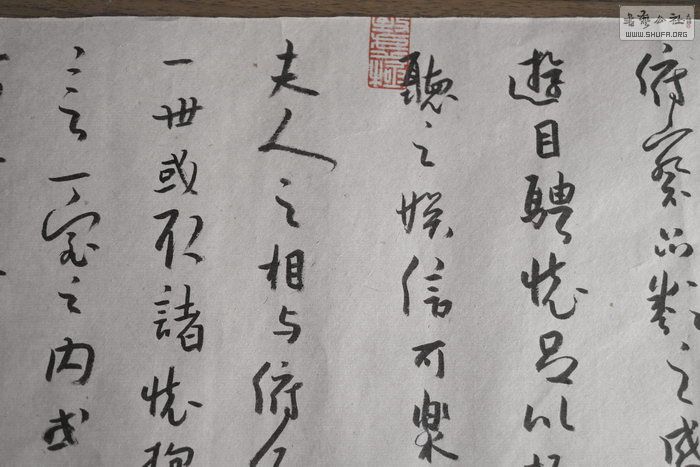 書藝公社
WWW.SHUFA.ORG
俯察品類之盛
遊目騁懷足以
聽之娛信可樂
夫人之相与俯
一世或取諸懷抱
言一室之内或